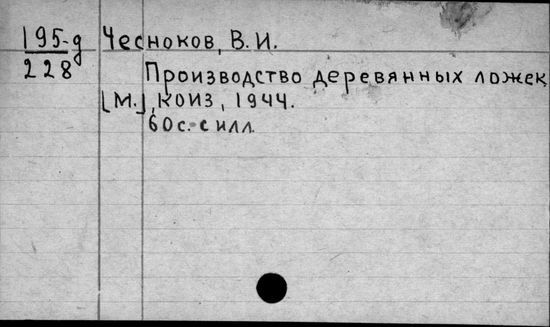 195-д Чесноков, В. И.
228
Производство деревянных ложек
[М.], КОИЗ, 1944.
60с. с илл.